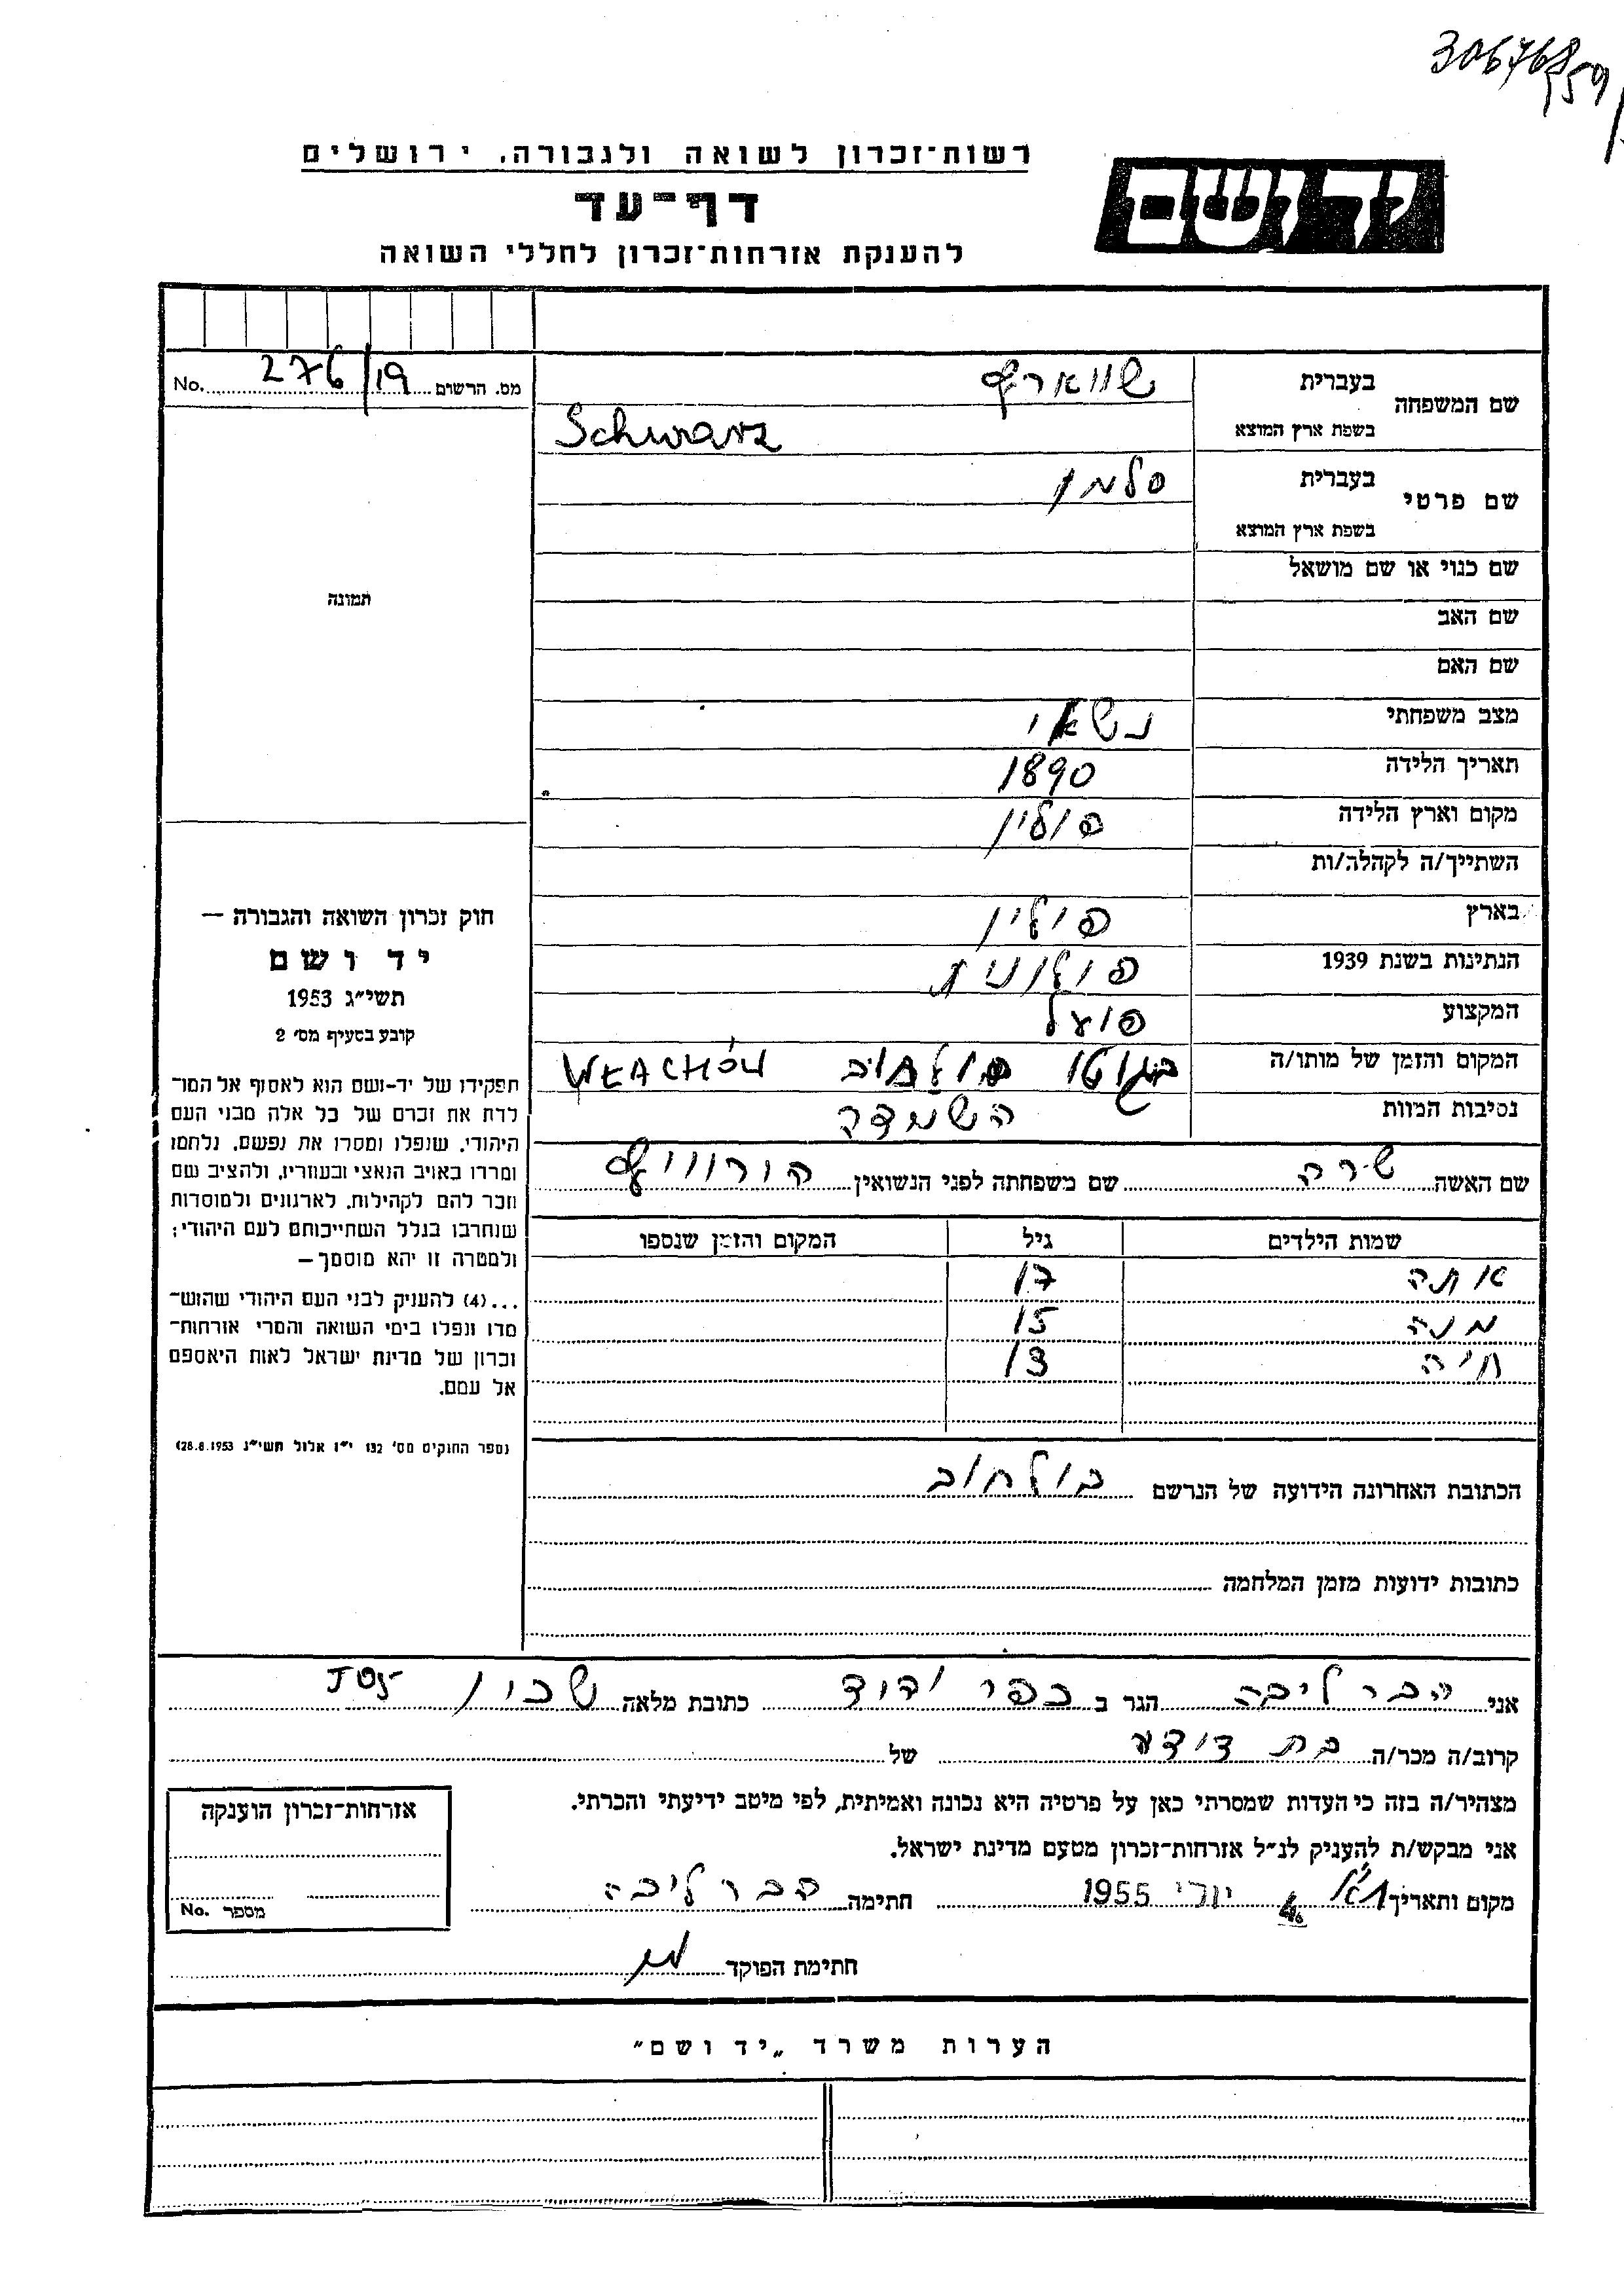 306768
159
רשות־זכרון לשואה ולגבורה, ירושלים
יד ושם
דף־עד
להענקת אזרחות־זכרון לחללי השואה
מס. הרשום 276/19 No.
שם המשפחה בעברית שווארץ
בשפת ארץ המוצא Schwarz
שם פרטי בעברית סלמן
בשפת ארץ המוצא
שם כנוי או שם מושאל
שם האב
שם האם
מצב משפחתי נשאוי
תאריך הלידה 1890
מקום וארץ הלידה פולין
השתייך/ה לקהלה/ות
בארץ פולין
הנתינות בשנת 1939 פולונית
המקצוע פועל
המקום והזמן של מותו/ה בגטו בולחוב
נסיבות המוות השמדה
שם האשה שרה שם משפחתה לפני הנשואין הורוויץ
שמות הילדים גיל המקום והזמן שנספו
אתה 17
מנה 15
חיה 13
הכתובת האחרונה הידועה של הנרשם בולחוב
כתובות ידועות מזמן המלחמה
תמונה
חוק זכרון השואה והגבורה —
יד ושם
תשי״ג 1953
קובע בסעיף מס׳ 2
תפקידו של יד־ושם הוא לאסוף אל המו־
לדת את זכרם של כל אלה מבני העם
היהודי, שנפלו ומסרו את נפשם, נלחמו
ומרדו באויב הנאצי ובעוזריו, ולהציב שם
וזכר להם לקהילות, לארגונים ולמוסדות
שנחרבו בגלל השתייכותם לעם היהודי;
ולמטרה זו יהא מוסמך —
...(4) להעניק לבני העם היהודי שהוש־
מדו ונפלו בימי השואה והמרי אזרחות־
זכרון של מדינת ישראל לאות היאספם
אל עמם.
(ספר החוקים מס׳ 132 י״ז אלול תשי״ג 28.8.1953)
אני הבר ליבה הגר ב כפר ידוד כתובת מלאה שכון
קרוב/ה מכר/ה בת דודע של
מצהיר/ה בזה כי העדות שמסרתי כאן על פרטיה היא נכונה ואמיתית, לפי מיטב ידיעתי והכרתי.
אני מבקש/ת להעניק לנ״ל אזרחות־זכרון מטעם מדינת ישראל.
מקום ותאריך 4 יוני 1955 חתימה הבר ליבה
חתימת הפוקד
אזרחות־זכרון הוענקה
מספר No.
הערות משרד „יד ושם״